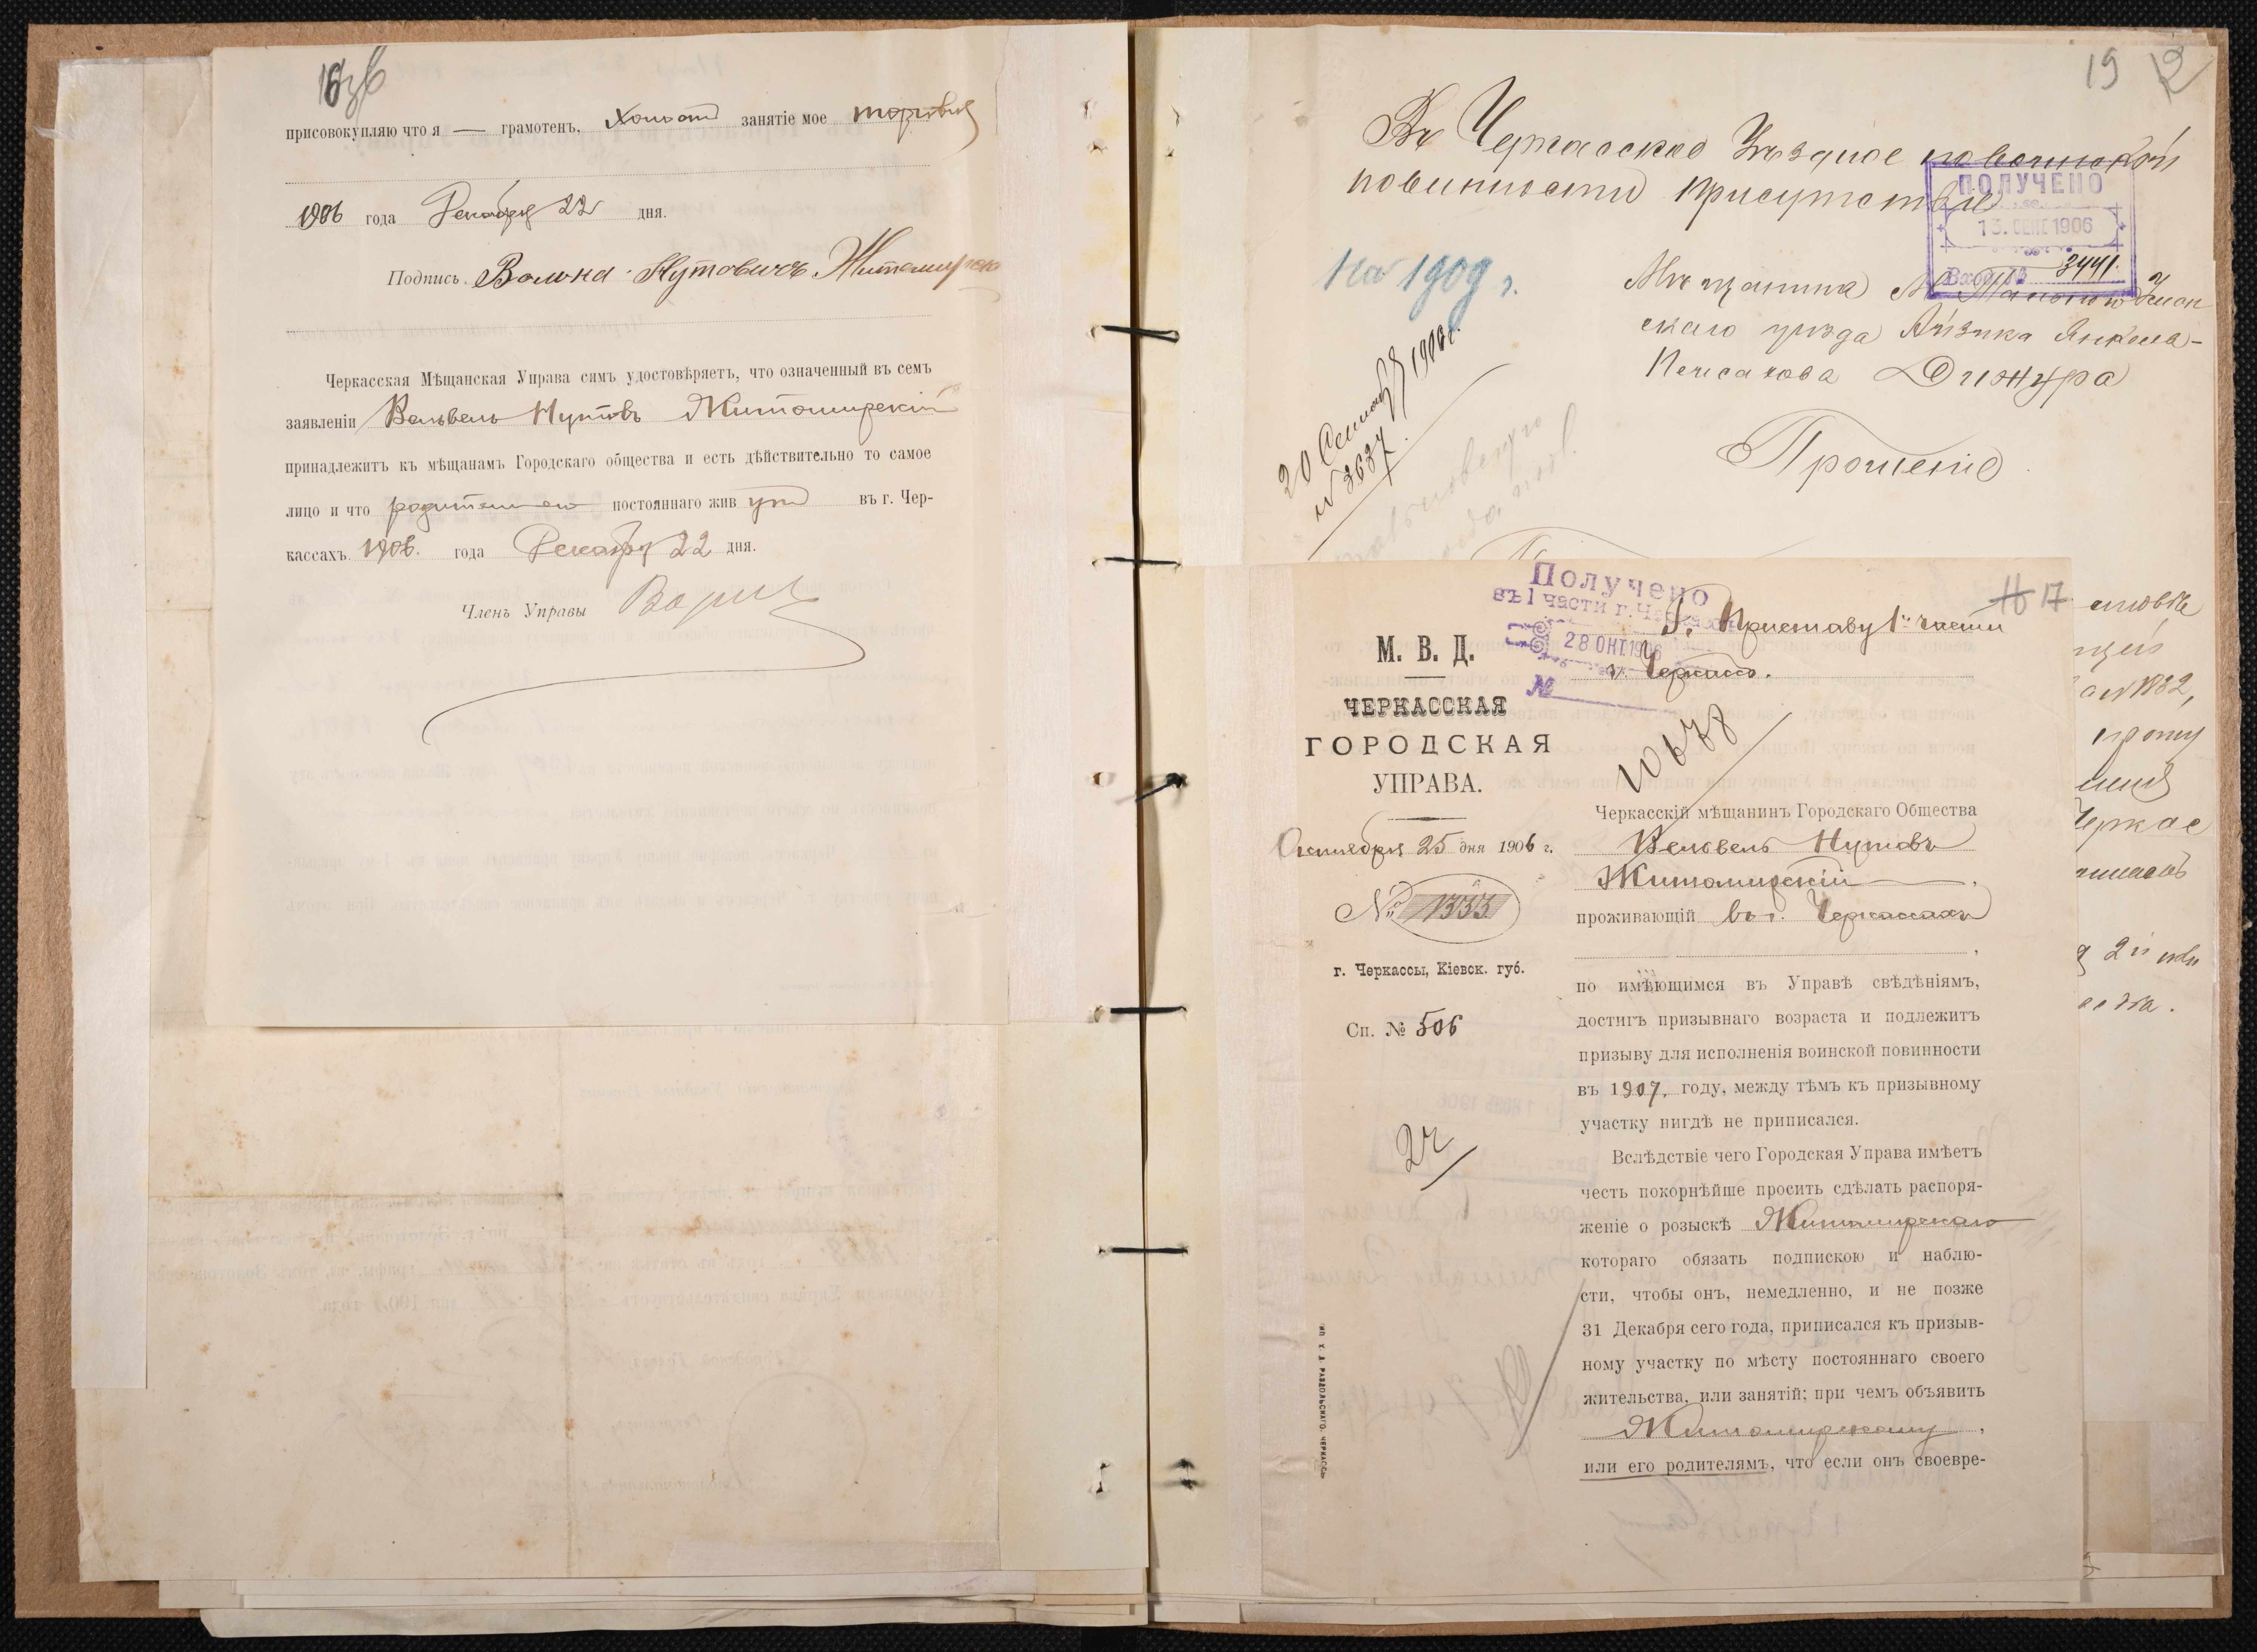 присовокупляю что я — грамотенъ, холостъ занятіе мое торговля
1906 года Декабря 22 дня.
Подпись. Волька Нутовичъ Житомирск
Черкасская Мѣщанская Управа симъ удостовѣряетъ, что означенный въ семъ
заявленіи Вельвель Нутовъ Житомирскій
принадлежитъ къ мѣщанамъ Городскаго общества и есть дѣйствительно то самое
лицо и что родители его постояннаго жив утъ въ г. Чер-
кассахъ. 1906. года Декабря 22 дня.
Членъ Управы
19
Въ Черкасское Уѣздное по воинской
повинности присутствіе
ПОЛУЧЕНО
13. СЕНТ 1906
Вход. № 3441.
на 1909 г.
Мѣщанина м. Уман
скаго уѣзда Айзика Янкеля-
Пейсахова Динжура
20 Сентября 1906 г.
№ 3637
Прошеніе
Получено
въ 1 части г. Черкассъ
28 ОКТ. 1906
№
17
Г. Приставу 1й части
г. Черкассъ.
М. В. Д.
ЧЕРКАССКАЯ
ГОРОДСКАЯ
УПРАВА.
10678
Октября 25 дня 1906 г.
№ 1333
г. Черкассы, Кіевск. губ.
Сп. № 506
Черкасскій мѣщанинъ Городскаго Общества
Вельвель Нутовъ
Житомирскій,
проживающій въ г. Черкассахъ
,
по имѣющимся въ Управѣ свѣдѣніямъ,
достигъ призывнаго возраста и подлежитъ
призыву для исполненія воинской повинности
въ 1907. году, между тѣмъ къ призывному
участку нигдѣ не приписался.
Вслѣдствіе чего Городская Управа имѣетъ
честь покорнѣйше просить сдѣлать распоря-
женіе о розыскѣ Житомирскаго
котораго обязать подпискою и наблю-
сти, чтобы онъ, немедленно, и не позже
31 Декабря сего года, приписался къ призыв-
ному участку по мѣсту постояннаго своего
жительства, или занятій; при чемъ объявить
Житомирскому,
или его родителямъ, что если онъ своевре-
ТИП. Х. Д. РАЗДОЛЬСКАГО, ЧЕРКАССЫ
1882,
прошу
Черкас